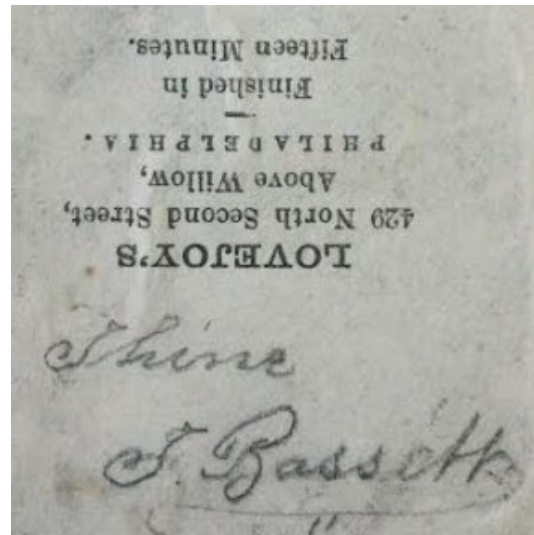 LOVEJOY'S
429 North Second Street,
Above Willow,
PHILADELPHIA.
Finished in
Fifteen Minutes.
Thine
J. Bassett